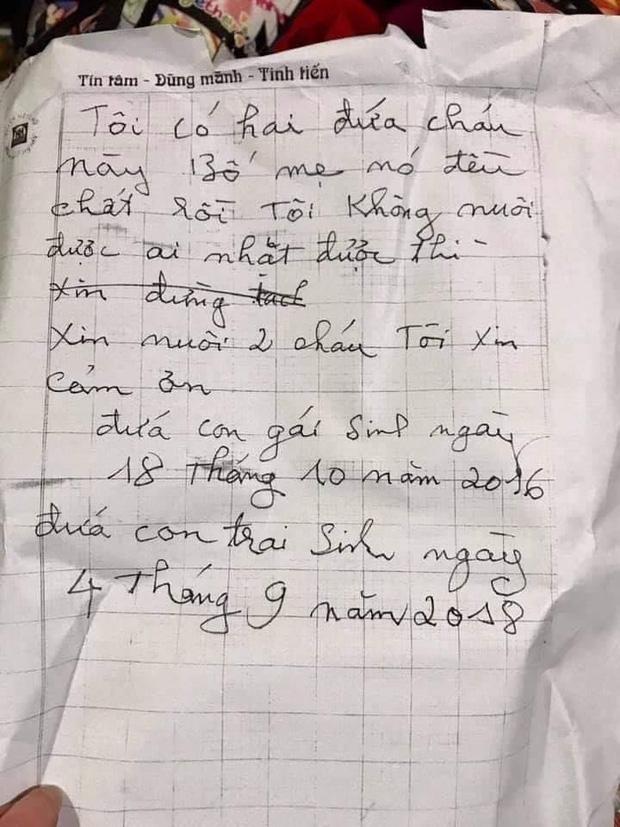 Tín tâm - Dũng mãnh - Tinh tiến
Tôi có hai đứa cháu
này Bố mẹ nó đều
chất rồi Tôi Không nuôi
được ai nhặt được thì
Xin đừng tach
Xin nuôi 2 cháu Tôi Xin
Cảm ơn
đứa con gái Sinh ngày
18 Tháng 10 năm 2016
đứa con trai Sinh ngày
4 Tháng 9 năm 2018